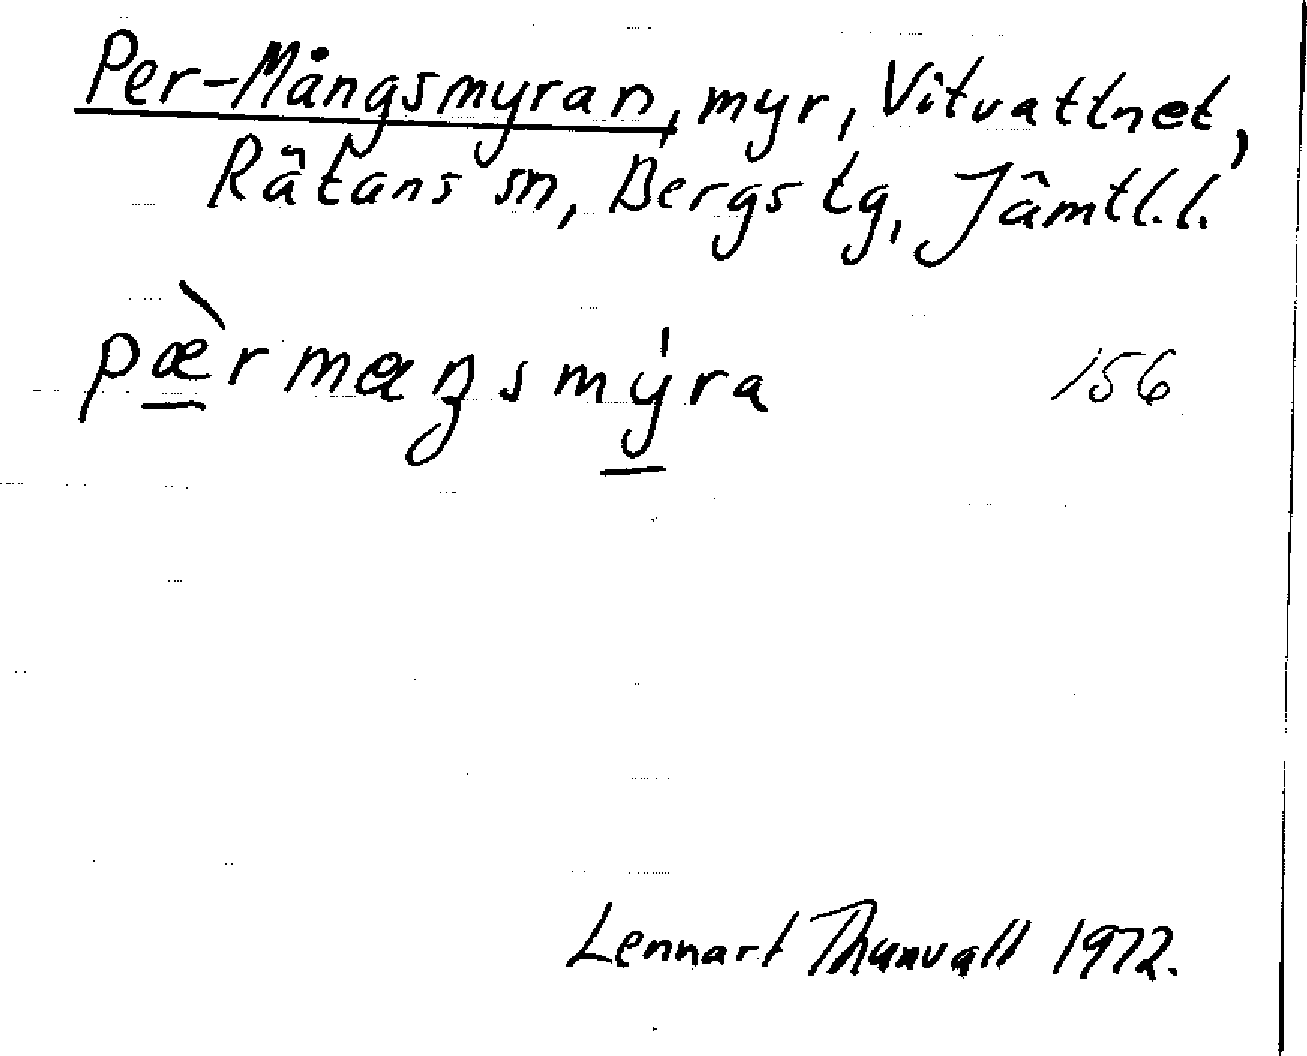 Per-Mångsmyran, myr, Vitvattnet,
Rätans sn, Bergs tg, Jämtl.l.
pæ̠̀rmaŋsmý̠ra 156
Lennart Thunvall 1972.